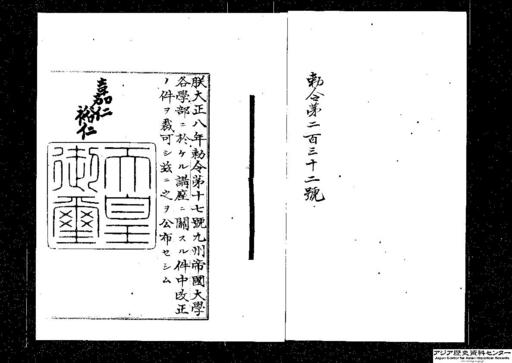 勅令第二百三十二號
朕大正八年勅令第十七號九州帝國大學
各學部ニ於ケル講座ニ關スル件中改正
ノ件ヲ裁可シ茲ニ之ヲ公布セシム
嘉仁
裕仁
天皇
御璽
アジア歴史資料センター
Japan Center for Asian Historical Records